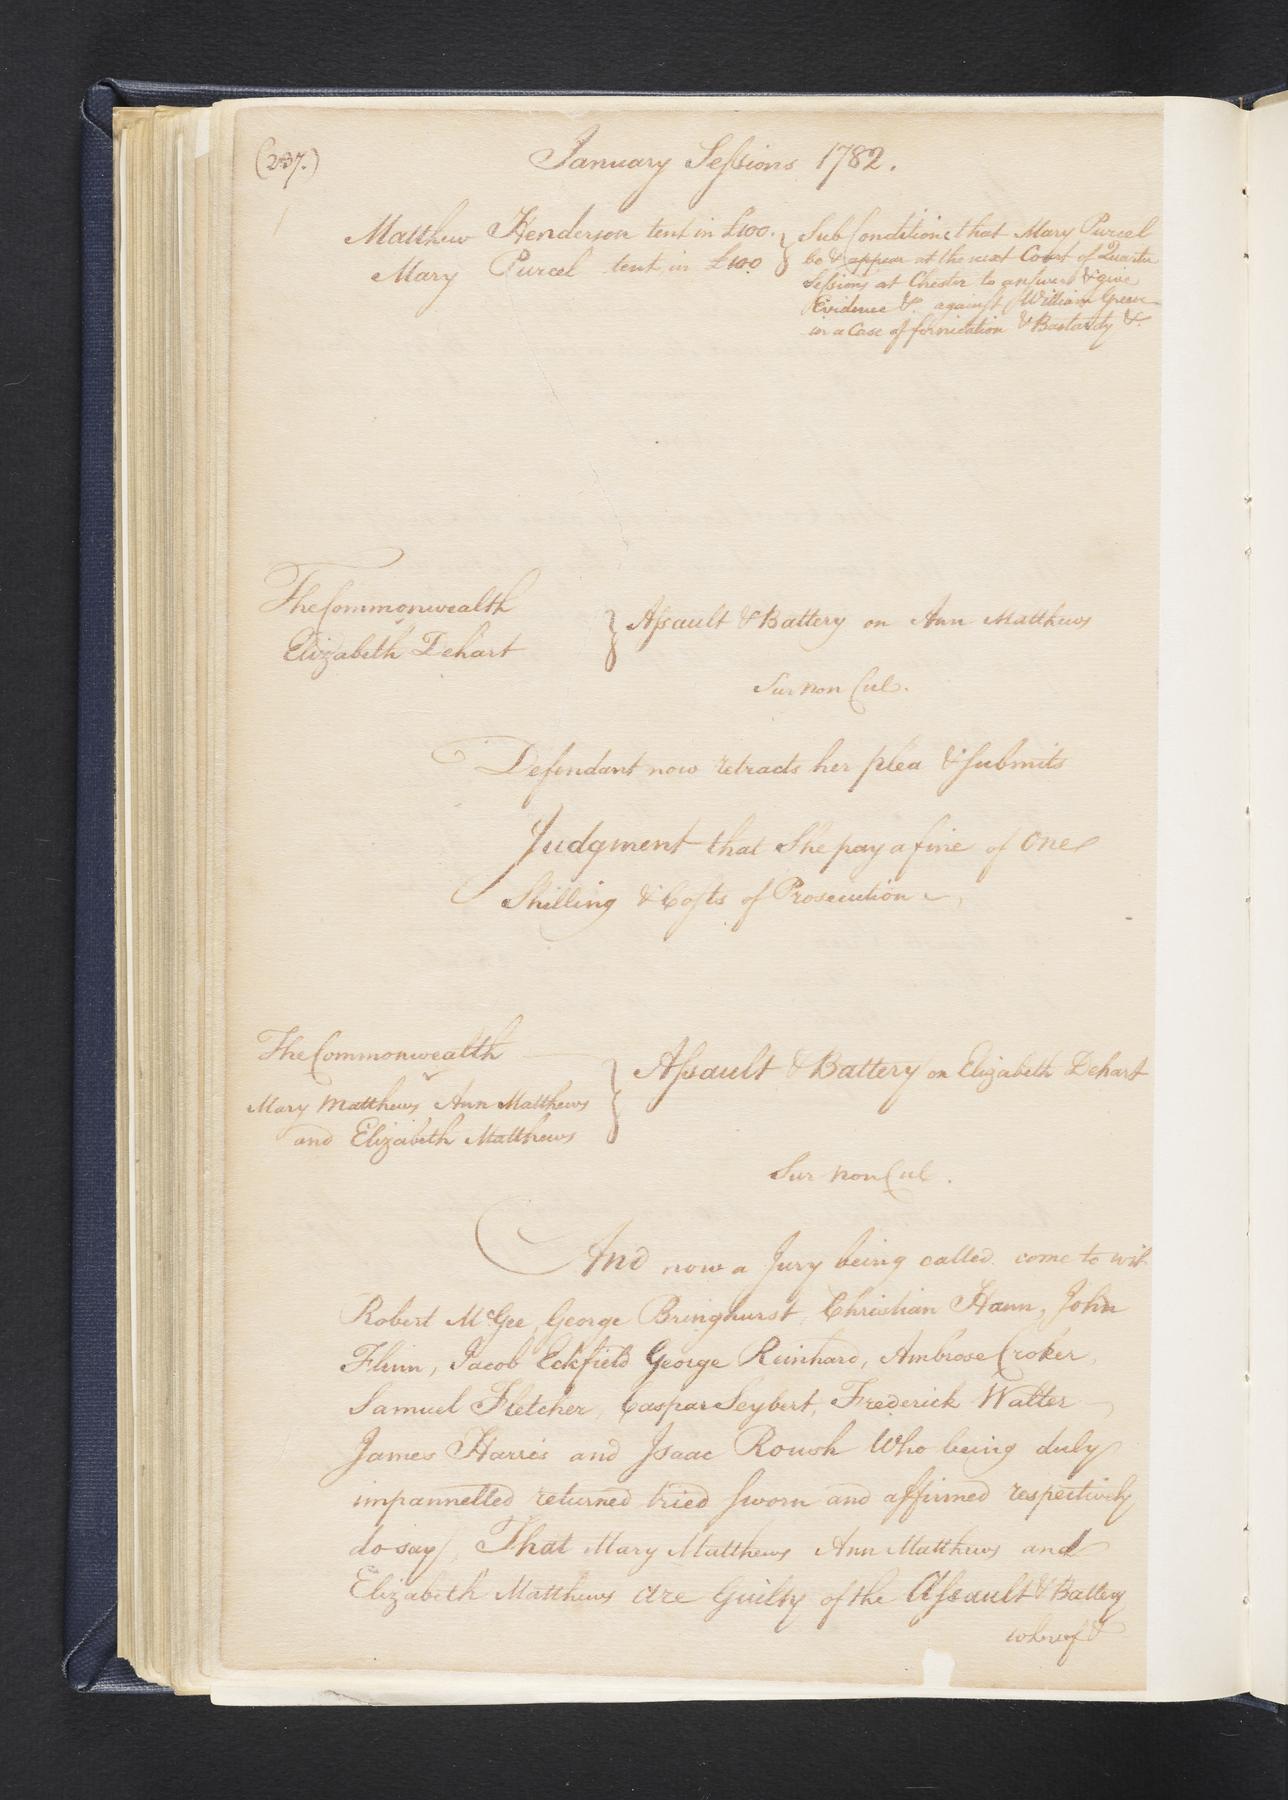 (237.)
January Sessions 1782.
Matthew Henderson tent in £100.
Mary Purcel tent in £100
Sub Conditione that Mary Purcel
be & appear at the next Court of Quarter
Sessions at Chester to answer & give
Evidence &c. against William Green
in a Case of fornication & Bastardy &c.
The Commonwealth
v
Elizabeth Dehart
Assault & Battery on Ann Matthews
Sur non Cul.
Defendant now retracts her plea & submits
Judgment that She pay a fine of one
Shilling & Costs of Prosecution
The Commonwealth
v
Mary Matthews Ann Matthews
and Elizabeth Matthews
Assault & Battery on Elizabeth Dehart
Sur non Cul.
And now a Jury being called come to wit
Robert McGee, George Bringhurst, Christian Hann, John
Flinn, Jacob Eckfield George Reinhard, Ambrose Croker,
Samuel Fletcher, Caspar Seybert, Frederick Walter
James Harris and Isaac Roush Who being duly
impannelled returned tried sworn and affirmed respectively
do say, That Mary Matthews Ann Matthews and
Elizabeth Matthews are Guilty of the Assault & Battery
whereof &